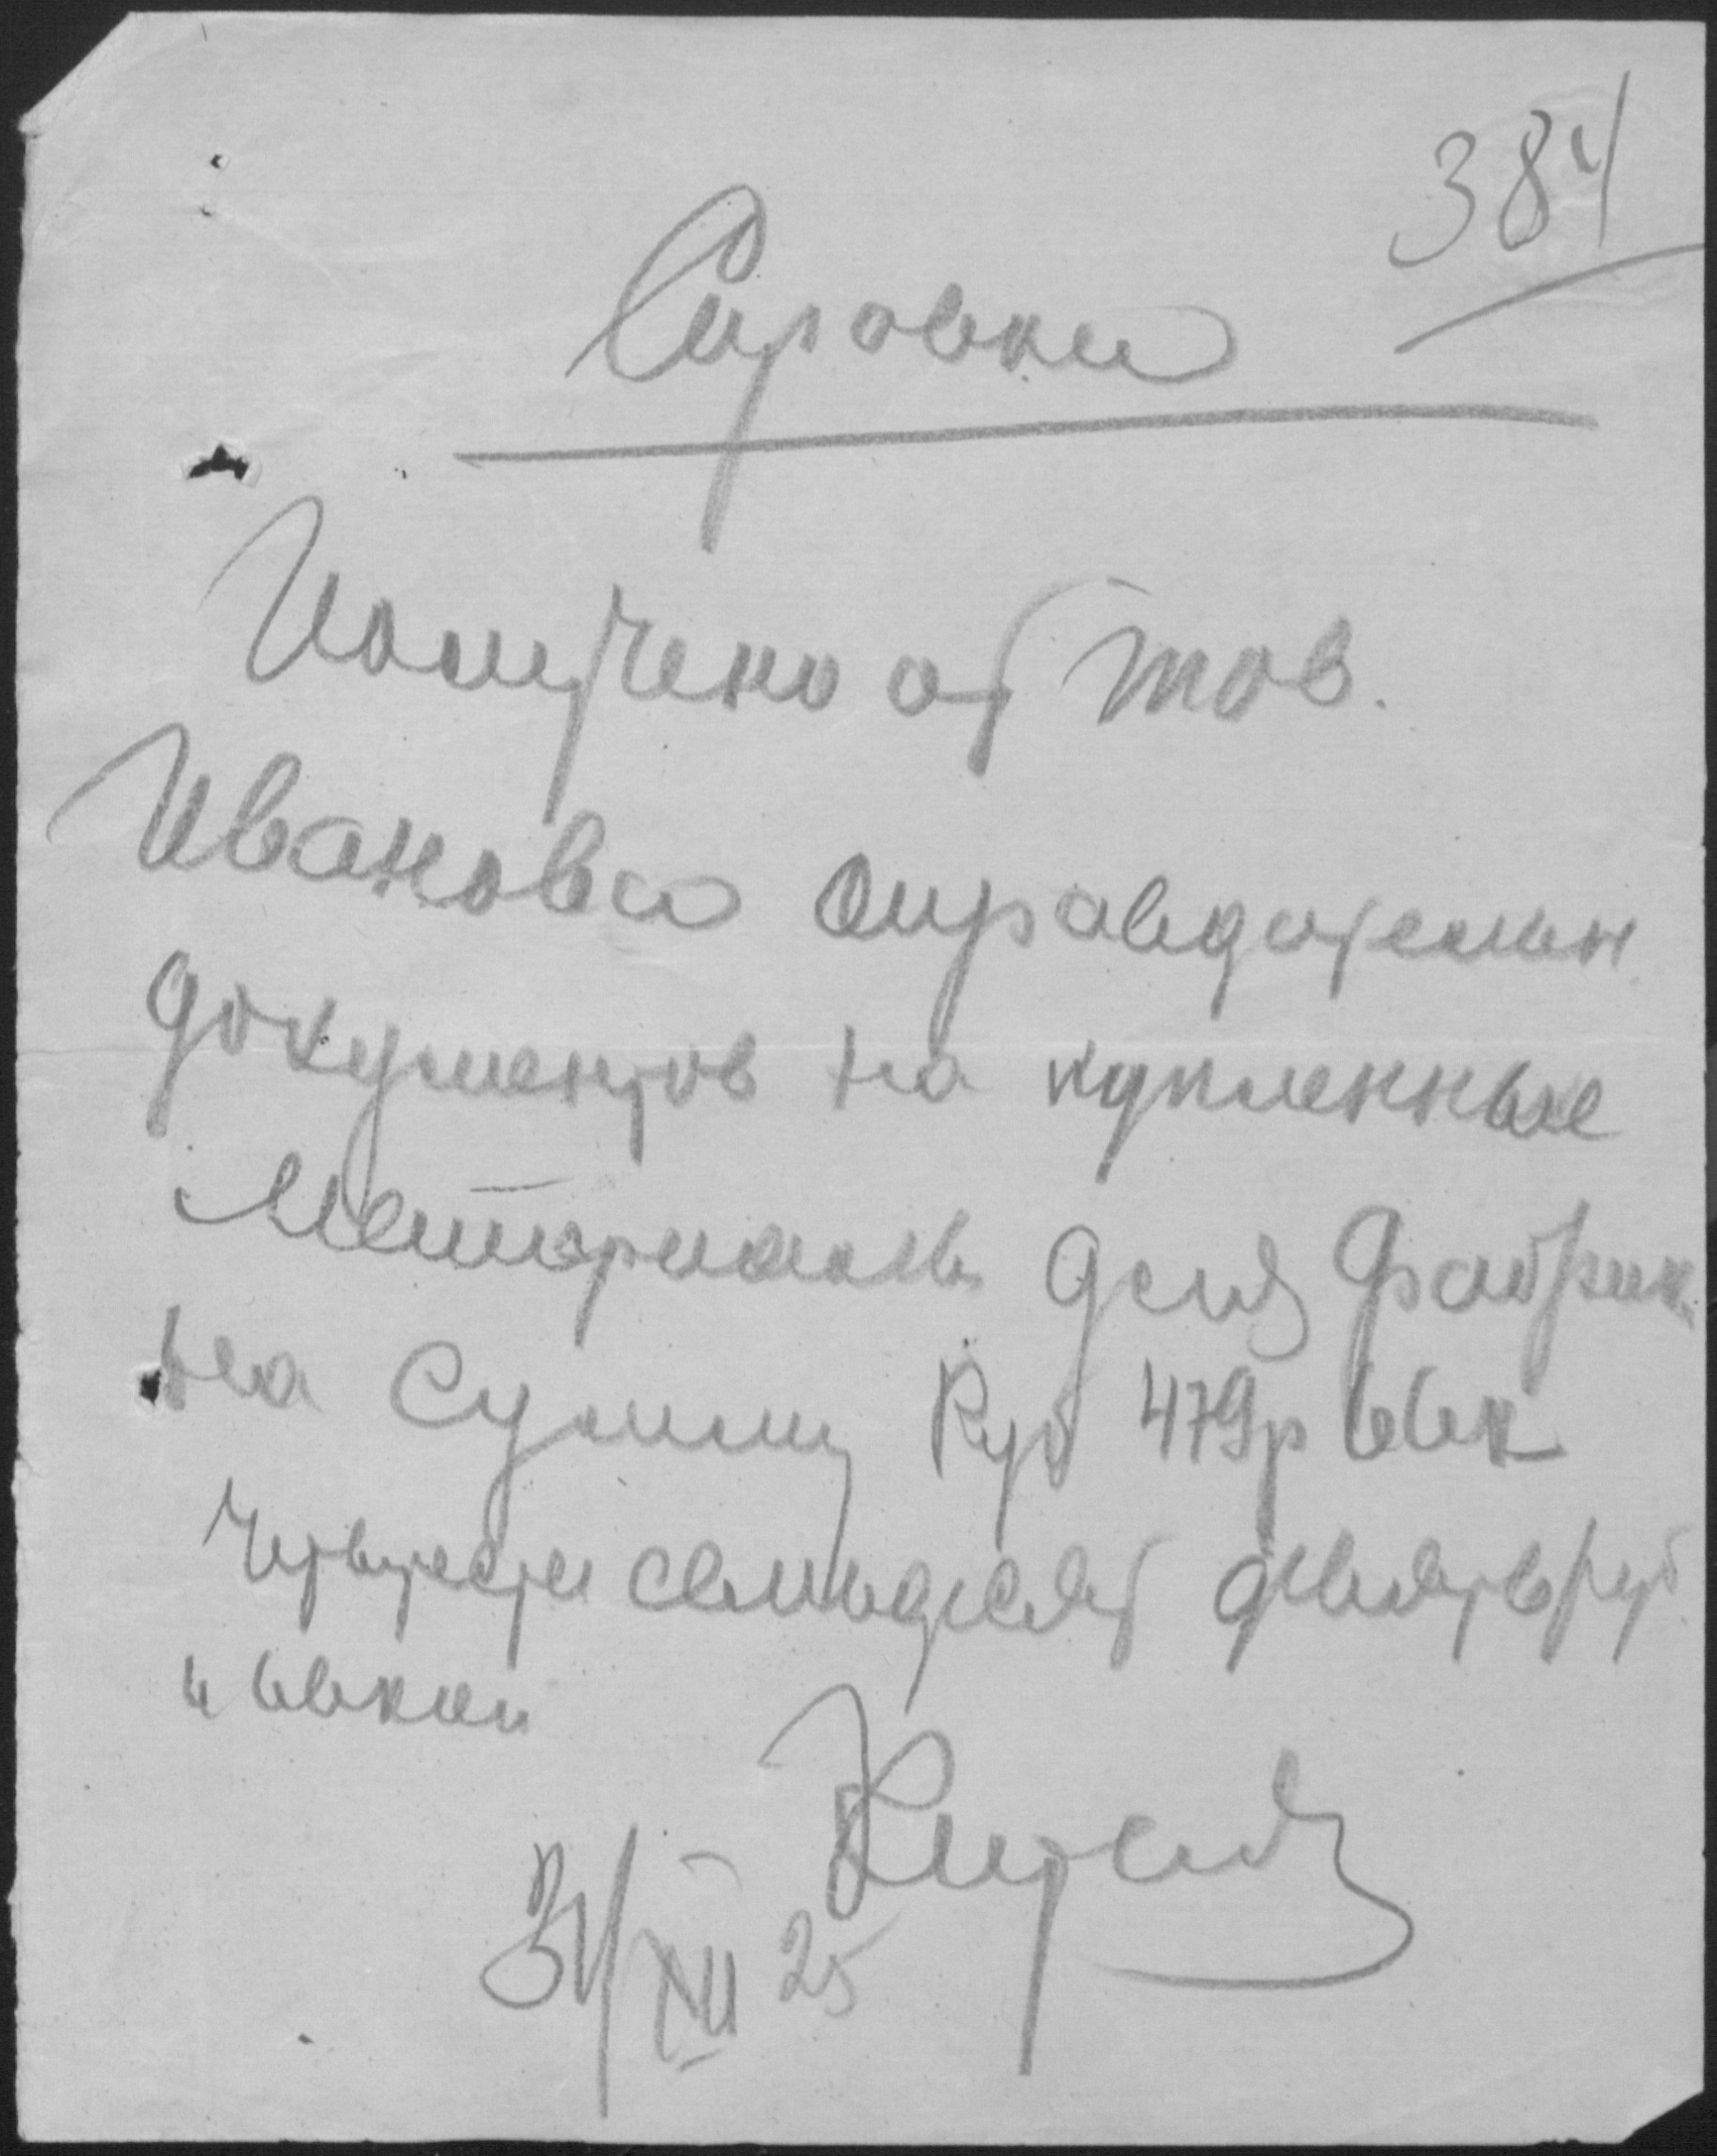 384
Справка
Получено от тов.
Иванова оправдательн
документов на купленные
материалы для фабрик
на сумму Руб 479р 66к
Четыреста семьдесят девять руб
и 66 коп
31/XII 25